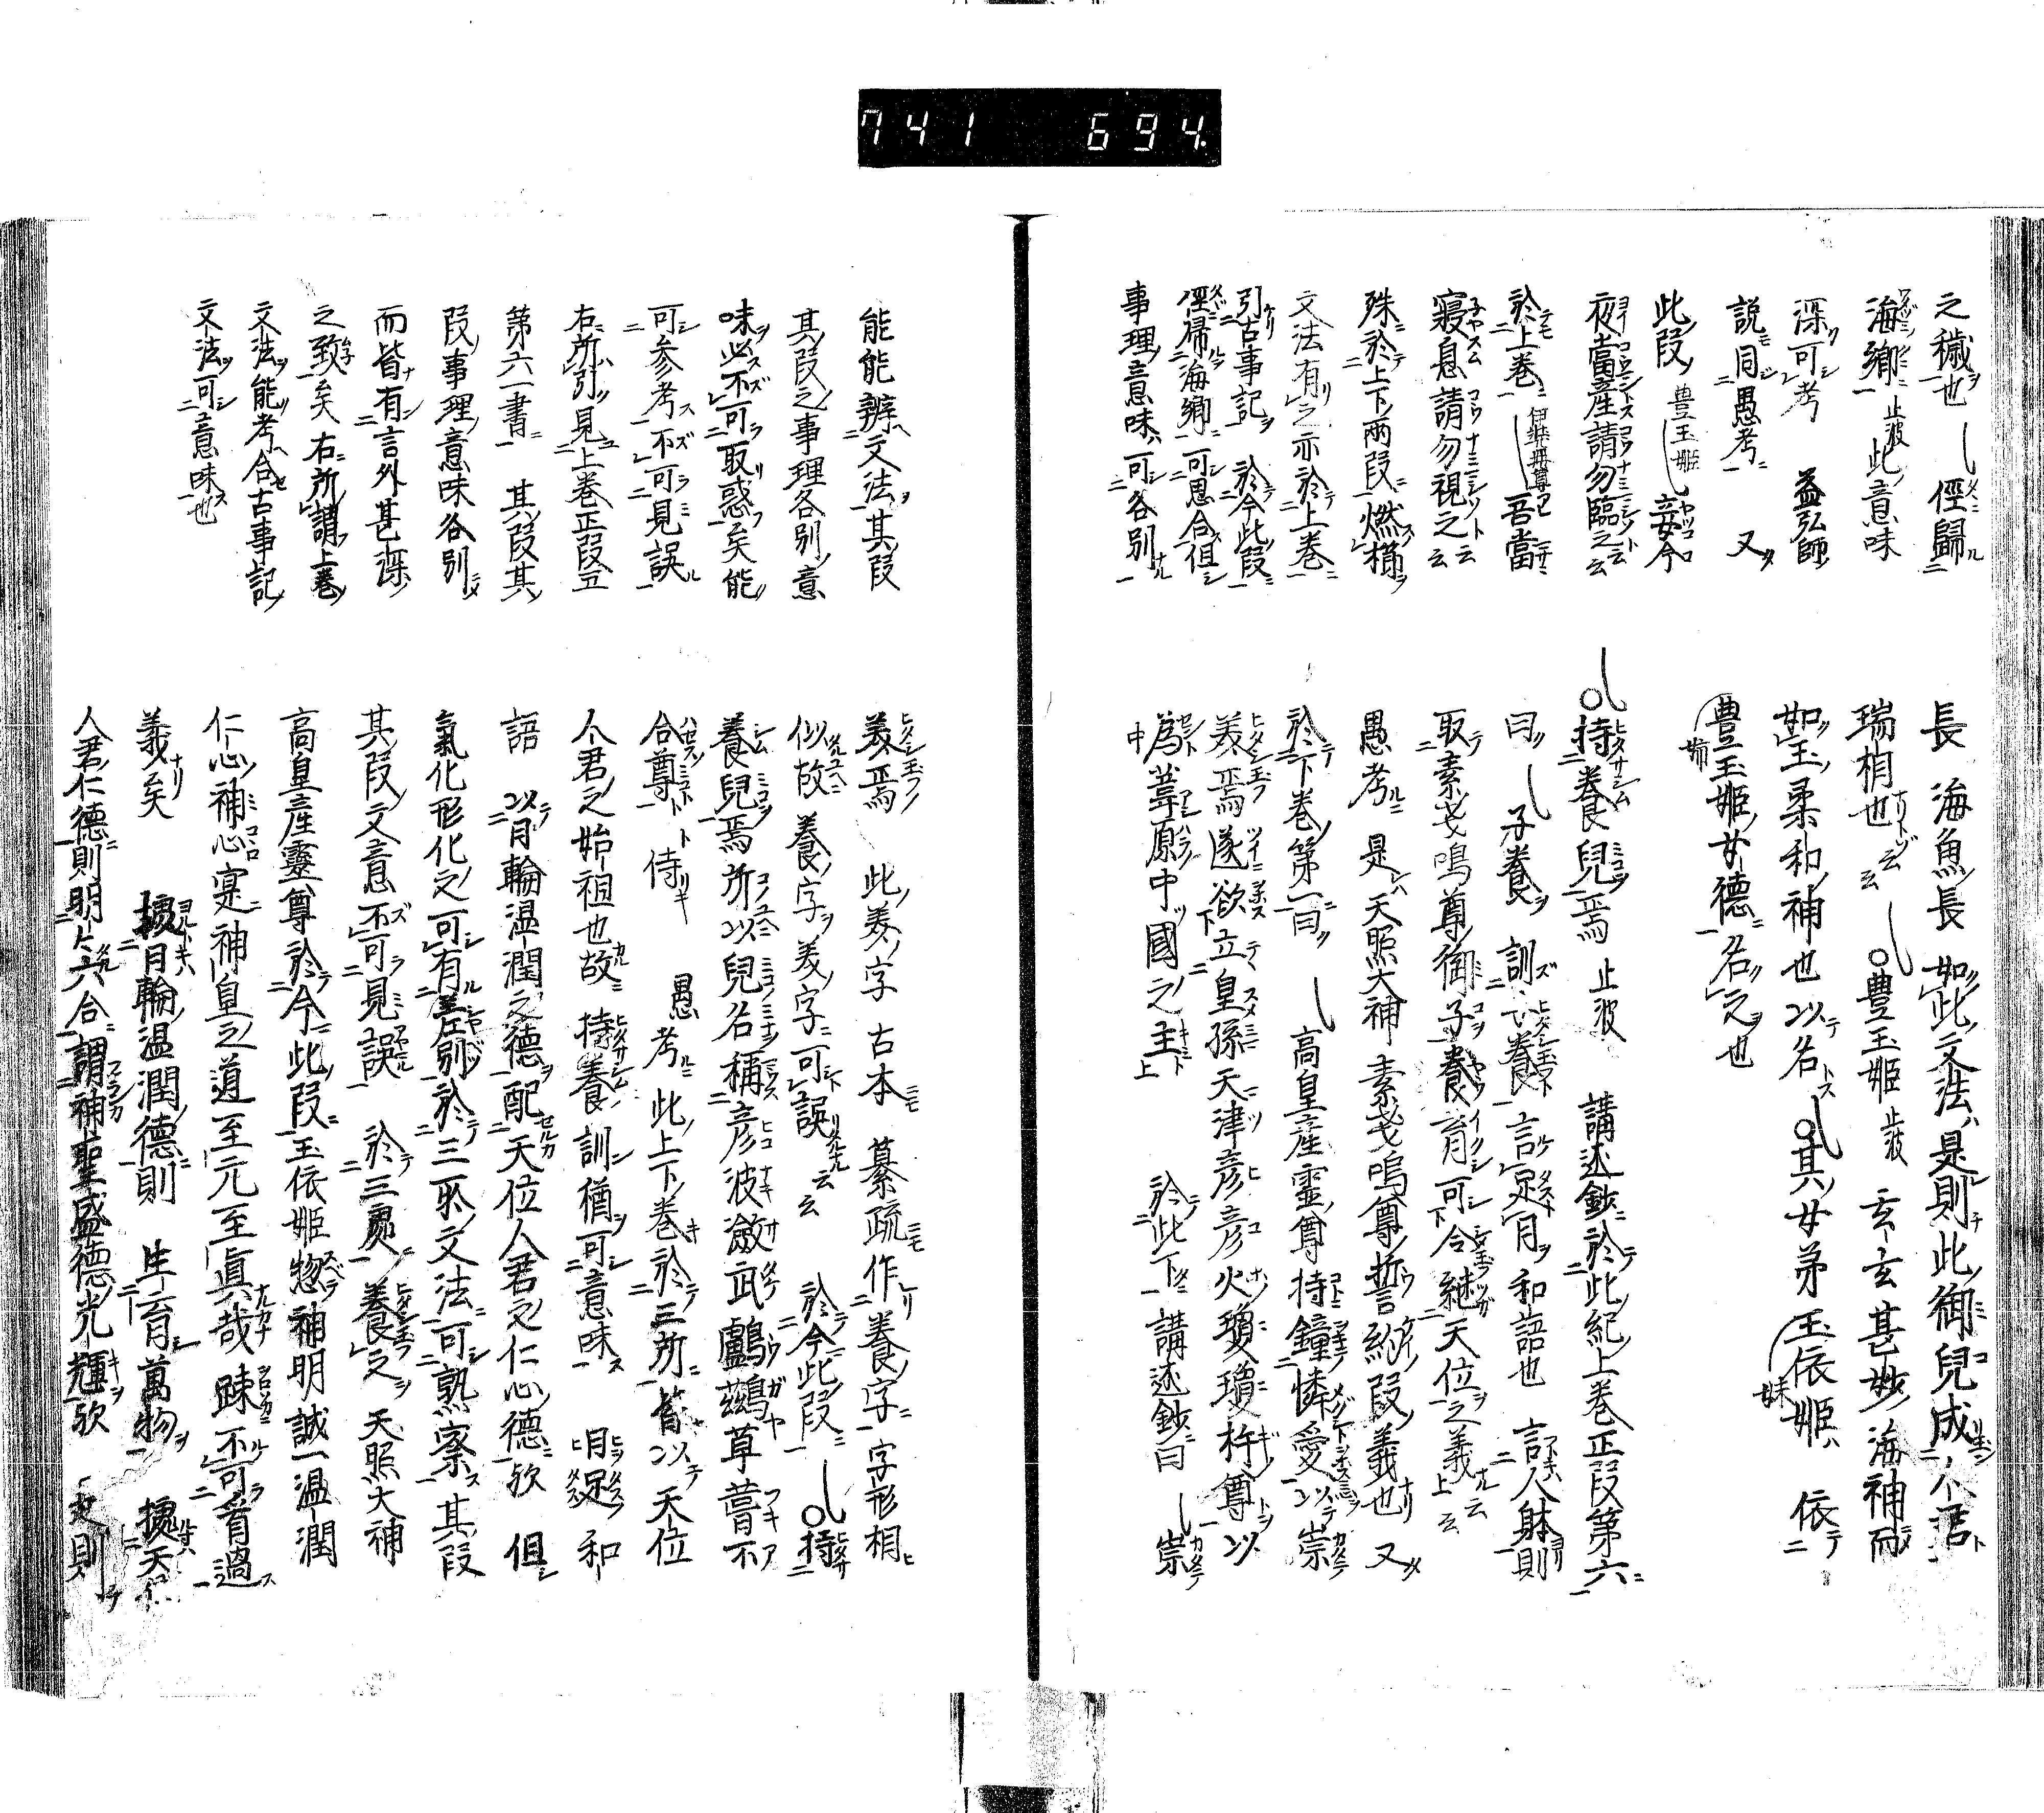 741 694
之穢也 徑歸
海鄉 止波 此意味
深可考 益弘師
説同愚考 又
此段 豊玉姫 妾今
夜當産請勿臨之云云
於上巻 伊弉冊尊 吾當
寝息請勿視之云云
殊於上下両段燃
文法有之亦於上巻
引古事記 於今此段
徑帰海郷可思合但
事理意味可各別
長 海魚長 如此文法是則此御兒成
瑞相也云云 豊玉姫 止波 玄玄甚妙海神而
如玉柔和神也以名 其女弟玉依姫 依
豊玉姫女德名之也
持養兒焉 止波 講述鈔於此紀上巻正段第六
曰 子養 訓 養 言足月和語也 言人躰則
取素戔嗚尊御子養育可令継天位之義云云
愚考 是天照大神素戔嗚尊誓約段義也 又
於下巻第一曰 高皇産霊尊持鐘憐愛以崇
養焉遂欲立皇孫天津彦彦火瓊瓊杵尊以
為葦原中國之主 於此下 講述鈔曰 崇
能能辨文法其段
其段之事理各別意
味必不可取惑矣能
可参考不可見誤
右所引見上巻正段五
第六一書 其段其
段事理意味各別
而皆有言外甚深
之致矣右所謂上巻
文法能考合古事記
文法可意味也
養焉 此養字古本 纂疏作養字字形相
似故養字羙字可誤云云 於今此段 持
養兒焉所以兒名稱彦波瀲武鸕鷀草葺不
合尊 侍 愚考 此上下巻於三所皆以天位
人君之始祖也故持養訓猶可意味 月足和
語 以月輪温潤之德配天位人君之仁心德欤 但
氣化形化之可有差別於三所文法可熟察其段
其段文意不可見誤 於三處養之天照大神
高皇産靈尊於今此段玉依姫惣神明誠一温潤
仁心神心寔神皇之道至元至眞哉 踈不可看過
義矣 據月輪温潤德則 生育萬物 據天
人君仁德則明六合謂神聖盛德光輝欤 則